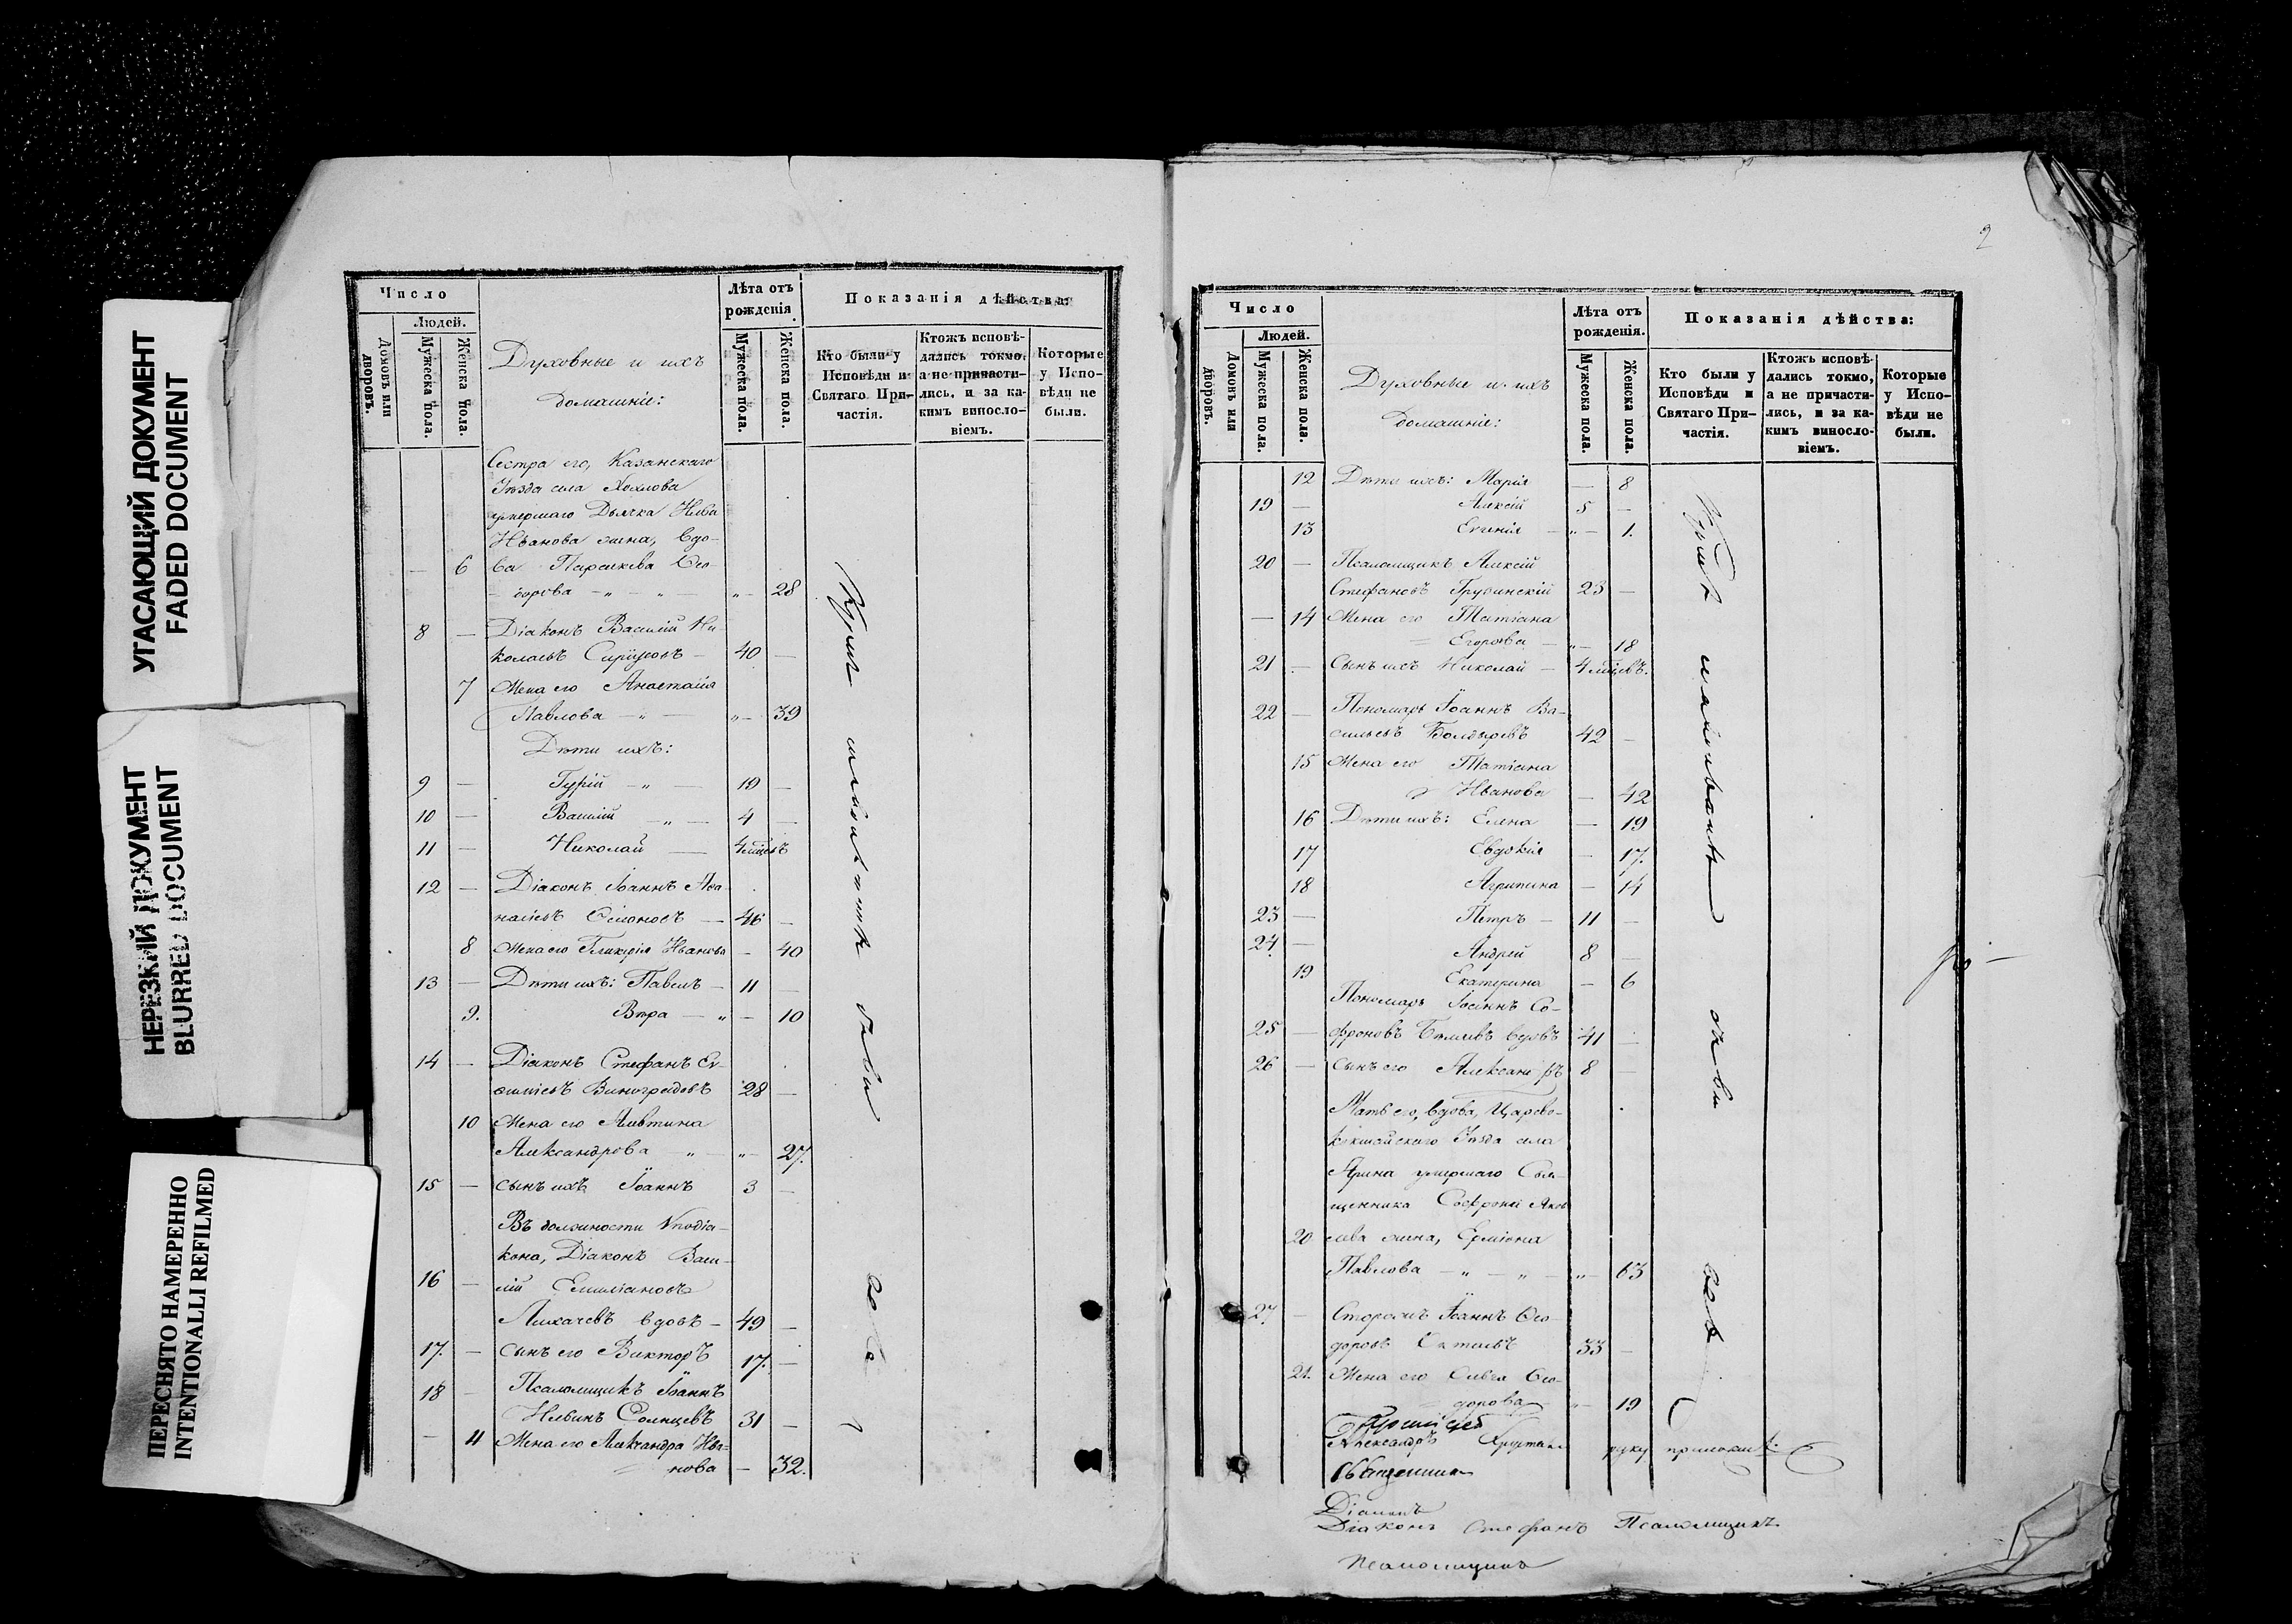 УГАСАЮЩИЙ ДОКУМЕНТ
FADED DOCUMENT
НЕРЕЗКИЙ ДОКУМЕНТ
BLURRED DOCUMENT
ПЕРЕСНЯТО НАМЕРЕННО
INTENTIONALLI REFILMED
Число
Людей.
Домовъ или дворовъ.
Мужеска пола.
Женска пола.
Духовные и ихъ
домашніе:
Лѣта отъ рожденія
Мужеска пола.
Женска пола.
Показанія дѣйства:
Кто были у Исповѣди и Святаго Причастія.
Ктожъ исповѣдались токмо, а не причастились, и за какимъ винословіемъ.
Которые у Исповѣди не были.
Сестра его, Казанскаго
Уѣзда села Хохлова
умершаго Дьячка Ильи
Иванова жена, вдо-
— 6 ва Параскева Ѳео-
дорова — „ — „ — „ — 28
8 — Діаконъ Василій Ни-
колаевъ — 40 —
7 Жена его Анастасія
Павлова — „ — „ — 39
Дѣти ихъ:
9 — Гурій — „ — 19 —
10 — Василій — „ — 4 —
11 — Николай — 4 мѣсѣвъ
12 — Діаконъ Іоаннъ Аѳа-
насіевъ — 46 —
8 Жена его Гликерія Иванова — 40
13 — Дѣти ихъ: Павелъ — 11 —
9. Вѣра — „ — 10
14 — Діаконъ Стефанъ Ев-
ѳиміевъ Виноградовъ 28 —
10 Жена его Алевтина
Александрова — „ — „ — 27.
15 — Сынъ ихъ Іоаннъ 3 —
Въ должности Уподіа-
кона, Діаконъ Васи-
16 — лій Емиліановъ
Лихачевъ вдовъ — 49 —
17. — Сынъ его Викторъ 17. —
18 — Псаломщикъ Іоаннъ
Ильинъ Солнцевъ 31 —
— 11 Жена его Александра Ива-
нова — 32.
2
Число
Людей.
Домовъ или дворовъ.
Мужеска пола.
Женска пола.
Духовные и ихъ
домашніе:
Лѣта отъ рожденія.
Мужеска пола.
Женска пола.
Показанія дѣйства:
Кто были у Исповѣди и Святаго Причастія.
Ктожъ исповѣдались токмо, а не причастились, и за какимъ винословіемъ.
Которые у Исповѣди не были.
12 Дѣти ихъ: Марія — 8
19 — Алексій 5 —
13 Евгенія — „ — 1.
20 — Псаломщикъ Алексій
Стефановъ Грузинскій 23 —
— 14 Жена его Татіана
Егорова — „ — 18
21 — Сынъ ихъ Николай — 4 мѣсѣвъ.
22 — Пономарь Іоаннъ Ва-
сильевъ Болдыревъ 42 —
15 Жена его Татіана
Иванова — 42
16 Дѣти ихъ: Елена — 19
17 Евдокія — 17.
18 Агрипина — 14
23 — Петръ — 11 —
24. — Андрей 8 —
19 Екатерина — 6
Пономарь Іоаннъ Со-
25 — фроновъ вдовъ 41 —
26 — Сынъ его Александръ 8 —
Мать его, вдова, Царево-
кокшайскаго Уѣзда села
умершаго Свя-
щенника Софронія Яков
20 лева жена, Ерміонія
Павлова — „ — „ — „ — 63
27 — Сторожъ Іоаннъ Ѳео-
доровъ 33 —
21. Жена его Ольга Ѳео-
дорова „ — 19
Александръ руку приложилъ.
Священникъ
Діаконъ
Діаконъ Стефанъ Псаломщикъ
Псаломщикъ